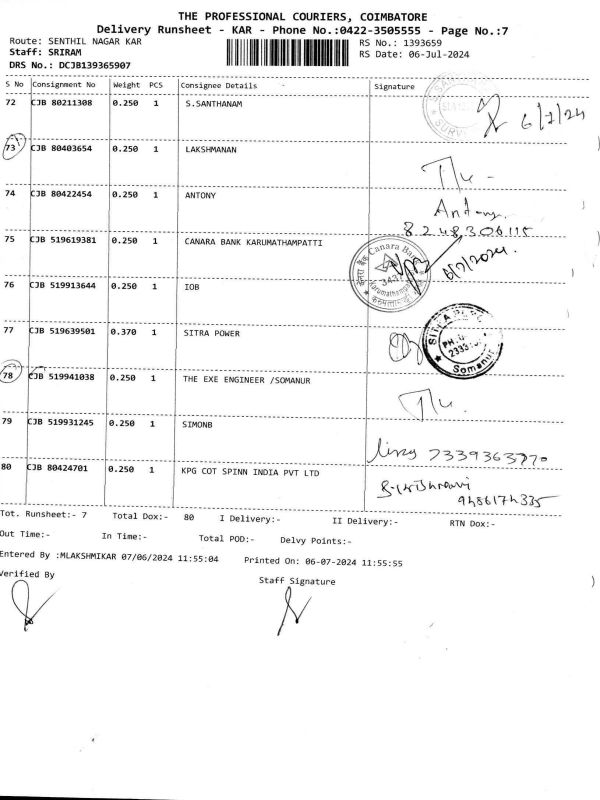 THE PROFESSIONAL COURIERS, COIMBATORE
Delivery Runsheet - KAR - Phone No.:0422-3505555 - Page No.:7
Route: SENTHIL NAGAR KAR RS No.: 1393659
Staff: SRIRAM RS Date: 06-Jul-2024
DRS No.: DCJB139365907
S No Consignment No Weight PCS Consignee Details Signature
72 CJB 80211308 0.250 1 S.SANTHANAM
6/7/24
73 CJB 80403654 0.250 1 LAKSHMANAN
74 CJB 80422454 0.250 1 ANTONY
75 CJB 519619381 0.250 1 CANARA BANK KARUMATHAMPATTI
Canara Bank
76 CJB 519913644 0.250 1 IOB
77 CJB 519639501 0.370 1 SITRA POWER
Somanur
78 CJB 519941038 0.250 1 THE EXE ENGINEER /SOMANUR
79 CJB 519931245 0.250 1 SIMONB
80 CJB 80424701 0.250 1 KPG COT SPINN INDIA PVT LTD
Tot. Runsheet:- 7 Total Dox:- 80 I Delivery:- II Delivery:- RTN Dox:-
Out Time:- In Time:- Total POD:- Delvy Points:-
Entered By :MLAKSHMIKAR 07/06/2024 11:55:04 Printed On: 06-07-2024 11:55:55
Verified By Staff Signature